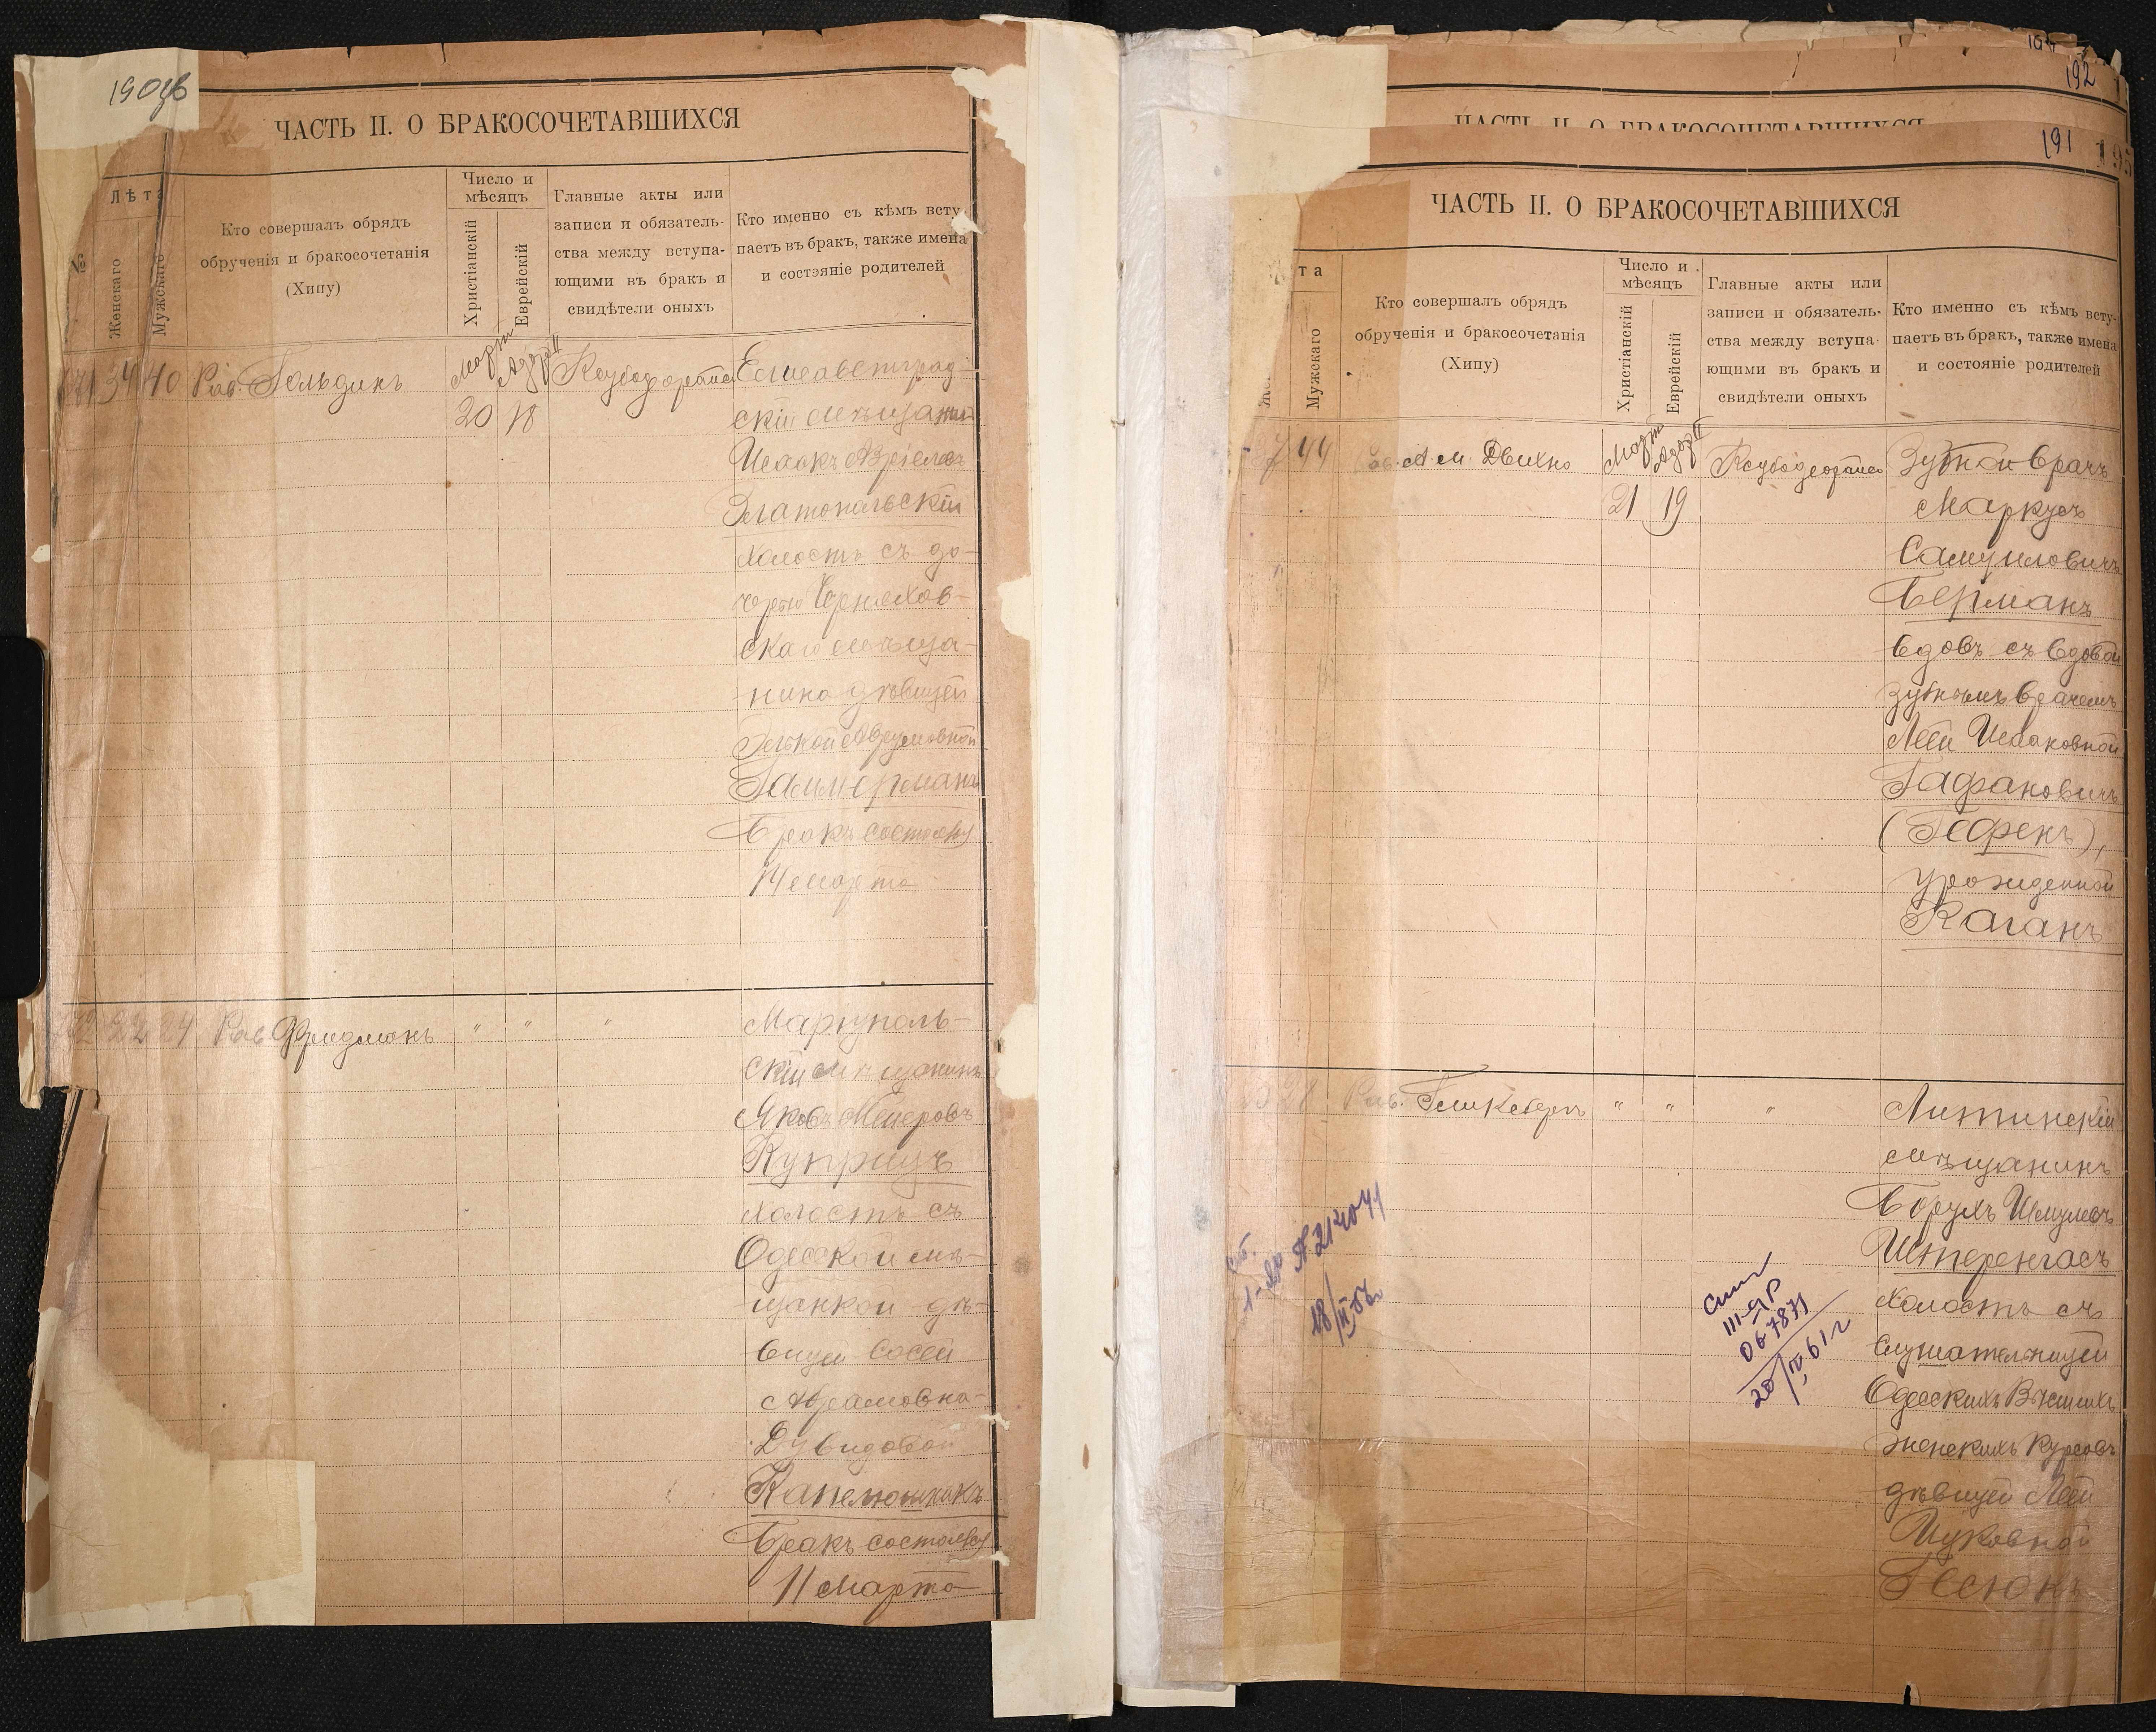 190 об
ЧАСТЬ II. О БРАКОСОЧЕТАВШИХСЯ
№
Лѣта
Женскаго
Мужскаго
Кто совершалъ обрядъ
обрученія и бракосочетанія
(Хипу)
Число и
мѣсяцъ
Христіанскій
Еврейскій
Главные акты или
записи и обязатель-
ства между вступа-
ющими въ бракъ и
свидѣтели оныхъ
Кто именно съ кѣмъ всту
паетъ въ бракъ, также имена
и состояніе родителей
171 34 40 Рав. Гольдинъ
Марта Адаръ II
20 18
Елисаветград-
скій мѣщанинъ
Исаакъ
Златопольскій
Холостъ съ до-
черью Черняхов-
скаго мѣща-
нина дѣвицей
Аврумовной
Гаммерманъ
Бракъ состоялся
14 марта
172 22 24 Рав Фридманъ " " "
Маріуполь-
скій мѣщанинъ
Яковъ Мееровъ
Куприцъ
холостъ съ
Одесской мѣ-
щанкой дѣ-
вицей Сосей
Абрамовно-
Дувидовой
Капелюшникъ
Бракъ состоялся
11 Марта
192
ЧАСТЬ II. О БРАКОСОЧЕТАВШИХСЯ
191
195
ЧАСТЬ II. О БРАКОСОЧЕТАВШИХСЯ
та
Же
Мужскаго
Кто совершалъ обрядъ
обрученія и бракосочетанія
(Хипу)
Число и
мѣсяцъ
Христіанскій
Еврейскій
Главные акты или
записи и обязатель-
ства между вступа-
ющими въ бракъ и
свидѣтели оныхъ
Кто именно съ кѣмъ всту-
паетъ въ бракъ, также имена
и состояніе родителей
7 44 Рав. А. М. Двихно
Марта Адаръ II
21 19
Зубной врачъ
Маркусъ
Самуиловичъ
Берманъ
вдовъ съ вдовой
зубнымъ врачемъ
Леей Исааковной
Гафановичъ
(Гефенъ),
урожденной
Каганъ
28 Рав. " " "
Литинскій
мѣщанинъ
Борухъ Шмулевъ
Штеренгасъ
Холостъ съ
слушательницей
Одесскихъ Высшихъ
женскихъ курсовъ
дѣвицей Леей
Ицковной
Гесюнъ
III-ЯР
067871
20/IV 61 г